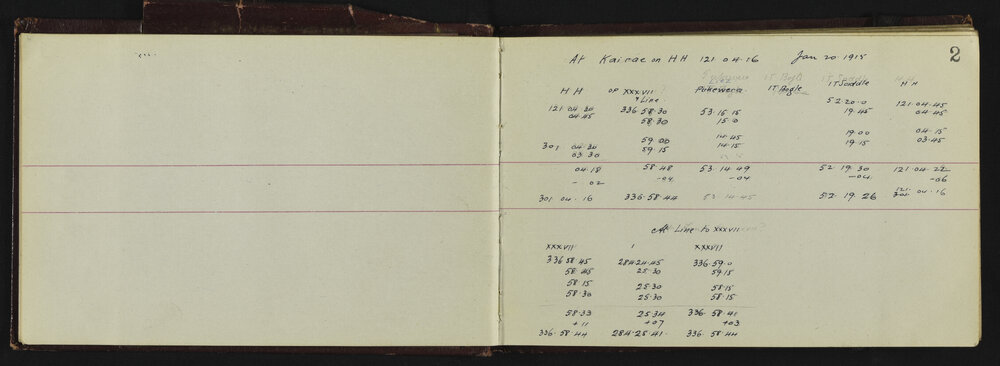 2
At Kairae on HH 121 04 16 Jan 20 1915
HH OP XXXVII Pukewera IT Angle IT Saddle HH
Line
52.20.0 121.04.45
121.04.30 336.58.30 53.15.15 19.45 04.45
04.45 58.30 15.0
19.00 04.15
59.00 14.45 19.15 03.45
301 04.30 59.15 14.15
03.30
04.18 58.48 53.14.49 52.19.30 121.04.22
- 02 -04 -04 -04 -06
301.04.16 336.58.44 53.14.45 52.19.26 121.04.16
At Line to XXXVII
XXXVII 1 XXXVII
336 58.45 284.24.45 336.59.0
58.45 25.30 59.15
58.15 25.30 58.15
58.30 25.30 58.15
58.33 25.34 336.58.41
+11 +07 +03
336.58.44 284.25.41 336.58.44